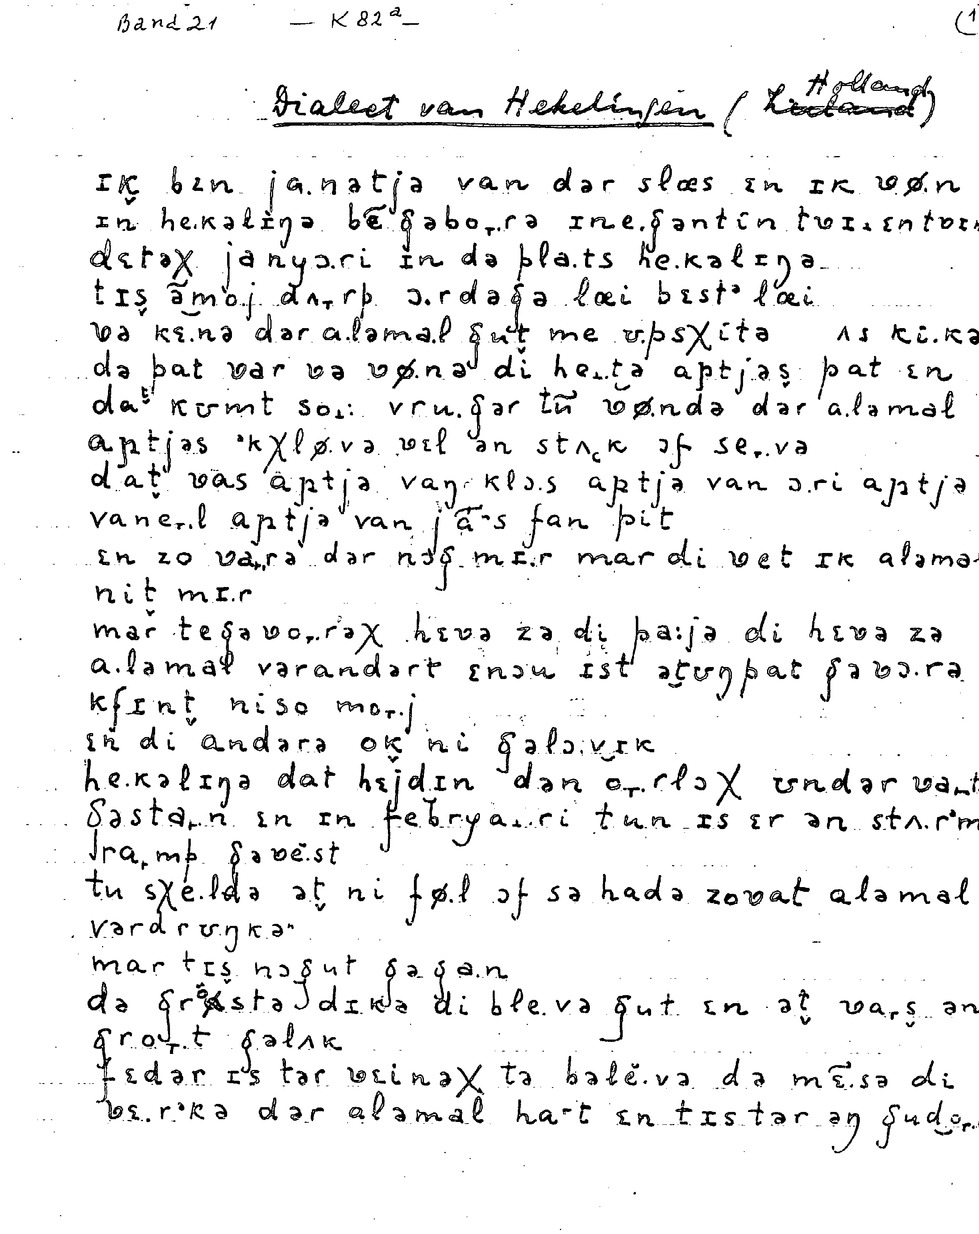 Band 21 — K 82ᵃ — (1
Dialect van Hekelingen (Holland)
ɪk̬ bɛn ja.nətjə van dər slœs ɛn ɪk ʋø.n
in he.kəlɪŋə bẽ ɡəbo˔.rə ɪne.ɡəntĩn tʋɪ.ɛntʋɪn
dɛtəχ janyɔ.ri in də pla.ts he.kəlɪŋə
tɪs̬ ãmo.j dʌ˔rp ɔ.rdəɡə lœi bɛstᵊ lœi
ʋə kɛ.nə dər a.ləma.l ɡut̬ me ʋpsχitə ʌs ki.kə
də pat ʋar ʋə ʋø.nə di he˔.tə aptjəs̬ pat ɛn
datᵗ kʊmt so˔: vru.ɡər tũ ʋø.ndə dər a.ləmal
aptjəs ᵊkχlø.və ʋɛl ən stʌk ɔf se˔.və
dat̬ ʋas aptjə vaŋ klɔ.s aptjə van ɔ.ri aptjə
vane˔.l aptjə van jã.s fan pit
ɛn zo ʋa˔.rə dər nɔɡ mɪ.r mar di ʋet ɪk aləma
nit̬ mɪ.r
mar teɡəʋo˔.rəχ hɛʋə zə di pa:jə di hɛʋə zə
a.ləmal vərandərt ɛnɔu ɪst ət̬ʊŋpat ɡəʋɔ.rə
kfɪnt̬ niso mo˔.j
ɛn di andərə ok̬ ni ɡəlɔ.v̬ɪk
he.kəlɪŋə dat hɛjdɪn dən o˔.rlɔχ ʊndər ʋa˔t
ɡəsta˔n ɛn ɪn febrya˔.ri tun ɪs ɛr ən stʌ.rᵊm
ra˔mp ɡəʋe.st
tu sχe.ldə ət̬ ni fø.l ɔf sə hadə zoʋat aləmal
vərdrʊŋkəⁿ
mar tɪs̬ nɔɡut ɡəɡa.n
də ɡrøstə dɪkə di ble.və ɡut ɛn ət̬ ʋa˔s̬ ən
ɡro˔.t ɡəlʌk
fɛdər ɪs tər ʋɛinəχ tə bəle.və də mɛ̃.sə di
ʋɛ.rᵊkə dər aləmal ha˔t ɛn tɪstər əŋ ɡudo˔.